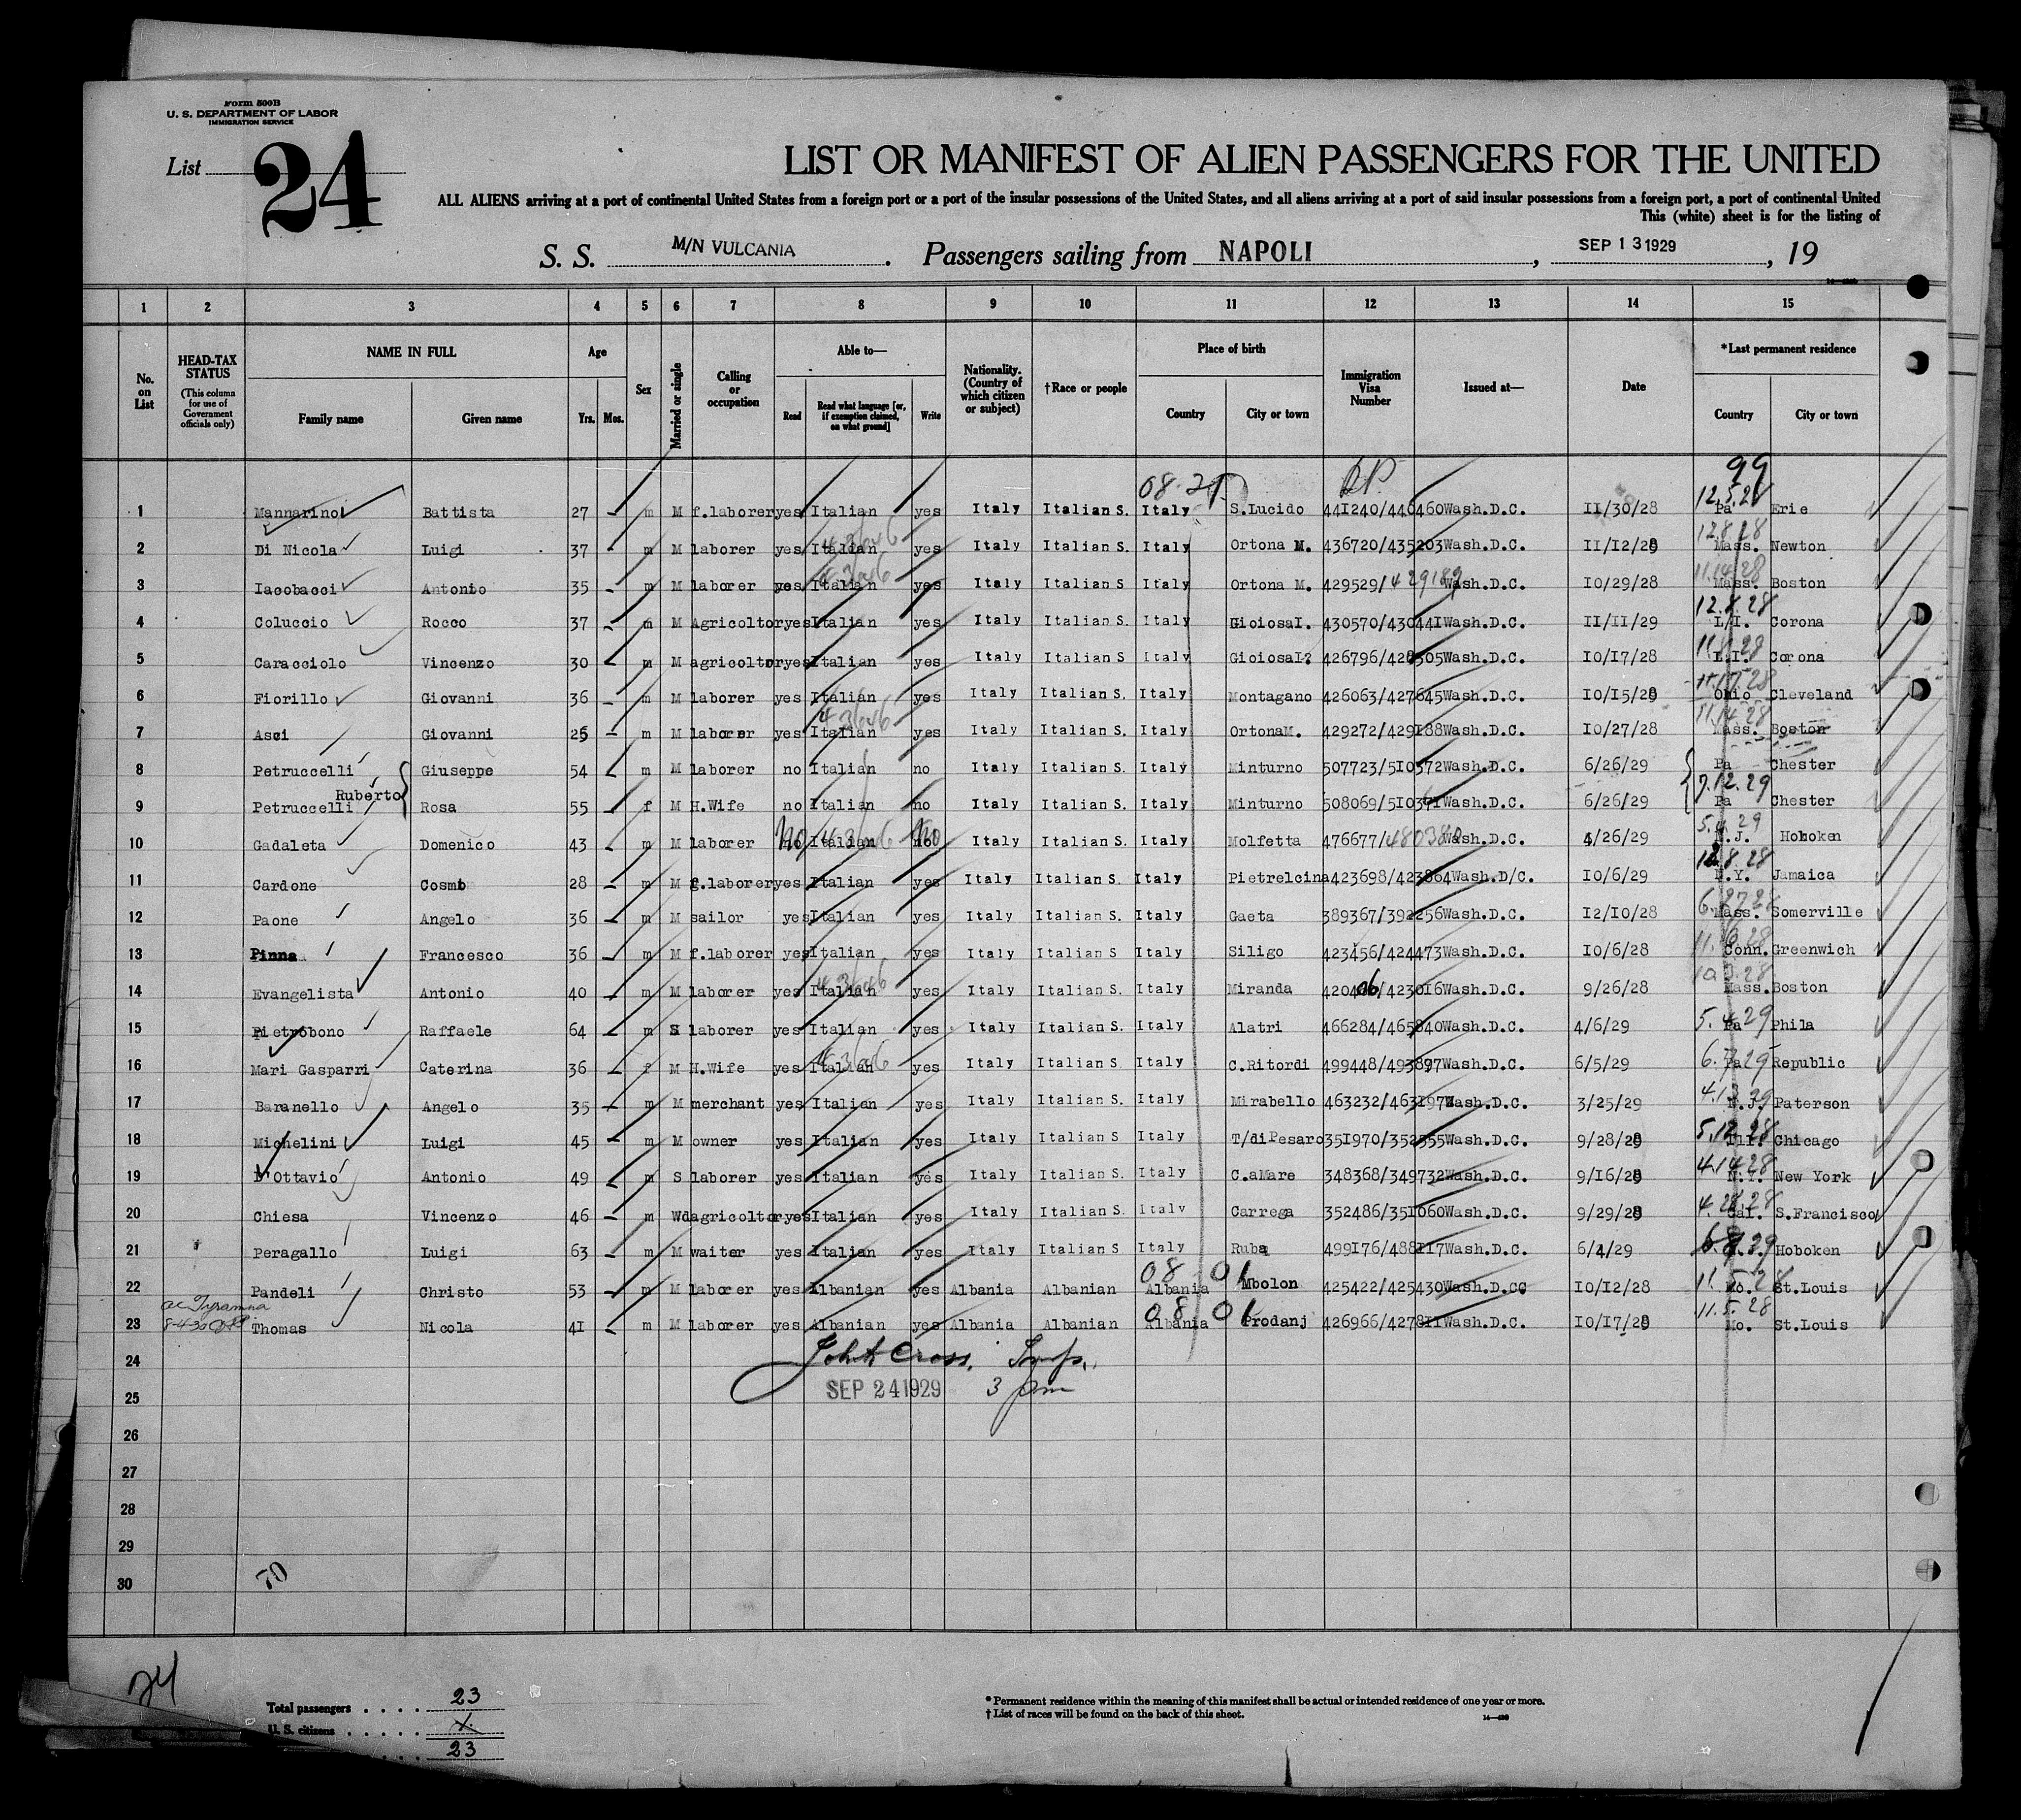 Form 500B
U. S. DEPARTMENT OF LABOR
IMMIGRATION SERVICE
List 24
LIST OR MANIFEST OF ALIEN PASSENGERS FOR THE UNITED
ALL ALIENS arriving at a port of continental United States from a foreign port or a port of the insular possessions of the United States, and all aliens arriving at a port of said insular possessions from a foreign port, a port of continental United
This (white) sheet is for the listing of
S. S. M/N VULCANIA. Passengers sailing from NAPOLI, SEP 13 1929, 19
1 2 3 4 5 6 7 8 9 10 11 12 13 14 15
No. on List
HEAD-TAX STATUS (This column for use of Government officials only)
NAME IN FULL Family name Given name
Age Yrs. Mos.
Sex
Married or single
Calling or occupation
Able to— Read Read what language [or, if exemption claimed, on what ground] Write
Nationality. (Country of which citizen or subject)
†Race or people
Place of birth Country City or town
Immigration Visa Number
Issued at—
Date
*Last permanent residence Country City or town
08-21 99
1 Mannarino Battista 27 m M f.laborer yes Italian yes Italy Italian S. Italy S.Lucido 441240/440460 Wash.D.C. 11/30/28 Pa Erie
2 Di Nicola Luigi 37 m M laborer yes Italian yes Italy Italian S. Italy Ortona M. 436720/435203 Wash.D.C. 11/12/28 12.8.28 Mass. Newton
3 Iacobacci Antonio 35 m M laborer yes Italian yes Italy Italian S Italy Ortona M. 429529/429189 Wash.D.C. 10/29/28 11.14.28 Mass. Boston
4 Coluccio Rocco 37 m M Agricoltor yes Italian yes Italy Italian S. Italy GioiosaI. 430570/430441 Wash.D.C. 11/11/29 12.8.28 L.I. Corona
5 Caracciolo Vincenzo 30 m M agricoltor yes Italian yes Italy Italian S Italy GioiosaI? 426796/428505 Wash.D.C. 10/17/28 L.I. Corona
6 Fiorillo Giovanni 36 m M laborer yes Italian yes Italy Italian S. Italy Montagano 426063/427645 Wash.D.C. 10/15/28 11.17.28 Ohio Cleveland
7 Asci Giovanni 25 m M laborer yes Italian yes Italy Italian S. Italy OrtonaM. 429272/429188 Wash.D.C. 10/27/28 11.14.28 Mass. Boston
8 Petruccelli Giuseppe 54 m M laborer no Italian no Italy Italian S. Italy Minturno 507723/510372 Wash.D.C. 6/26/29 Pa Chester
Ruberto 7.12.29
9 Petruccelli Rosa 55 f M H.Wife no Italian no Italy Italian S. Italy Minturno 508069/510371 Wash.D.C. 6/26/29 Pa Chester
10 Gadaleta Domenico 43 m M laborer no Italian no Italy Italian S. Italy Molfetta 476677/480380 Wash.D.C. 4/26/29 N.J. Hoboken
11 Cardone Cosmo 28 m M f.laborer yes Italian yes Italy Italian S. Italy Pietrelcina 423698/423864 Wash.D/C. 10/6/29 N.Y. Jamaica
12 Paone Angelo 36 m M sailor yes Italian yes Italy Italian S. Italy Gaeta 389367/392256 Wash.D.C. 12/10/28 Mass. Somerville
13 Pinna Francesco 36 m M f.laborer yes Italian yes Italy Italian S Italy Siligo 423456/424473 Wash.D.C. 10/6/28 Conn. Greenwich
14 Evangelista Antonio 40 m M laborer yes Italian yes Italy Italian S. Italy Miranda 420406/423016 Wash.D.C. 9/26/28 Mass. Boston
15 Pietrobono Raffaele 64 m S laborer yes Italian yes Italy Italian S. Italy Alatri 466284/465840 Wash.D.C. 4/6/29 5.4.29 Pa Phila
16 Mari Gasparri Caterina 36 f M H.Wife yes Italian yes Italy Italian S. Italy C.Ritordi 499448/493897 Wash.D.C. 6/5/29 Pa Republic
17 Baranello Angelo 35 m M merchant yes Italian yes Italy Italian S. Italy Mirabello 463232/463197 Wash.D.C. 3/25/29 N.J. Paterson
18 Michelini Luigi 45 m M owner yes Italian yes Italy Italian S Italy T/diPesaro 351970/352355 Wash.D.C. 9/28/28 5.12.28 Ill. Chicago
19 D'Ottavio Antonio 49 m S laborer yes Italian yes Italy Italian S. Italy C.aMare 348368/349732 Wash.D.C. 9/16/28 4.14.28 N.Y. New York
20 Chiesa Vincenzo 46 m Wd agricoltor yes Italian yes Italy Italian S. Italy Carrega 352486/351060 Wash.D.C. 9/29/28 4.28.28 Cal. S.Francisco
21 Peragallo Luigi 63 m M waiter yes Italian yes Italy Italian S Italy Ruba 499176/488117 Wash.D.C. 6/4/29 N.J. Hoboken
08 01
22 Pandeli Christo 53 m M laborer yes Albanian yes Albania Albanian Albania Mbolon 425422/425430 Wash.D.CC 10/12/28 11.5.28 Mo. St.Louis
08 01
23 Thomas Nicola 41 m M laborer yes Albanian yes Albania Albanian Albania Prodanj 426966/427811 Wash.D.C. 10/17/28 11.5.28 Mo. St.Louis
24 John Cross. Insp.
25 SEP 24 1929 3 pm
26
27
28
29
30
70
24
Total passengers . . . . 23
U. S. citizens . . . . . X
. . . . 23
* Permanent residence within the meaning of this manifest shall be actual or intended residence of one year or more.
† List of races will be found on the back of this sheet.